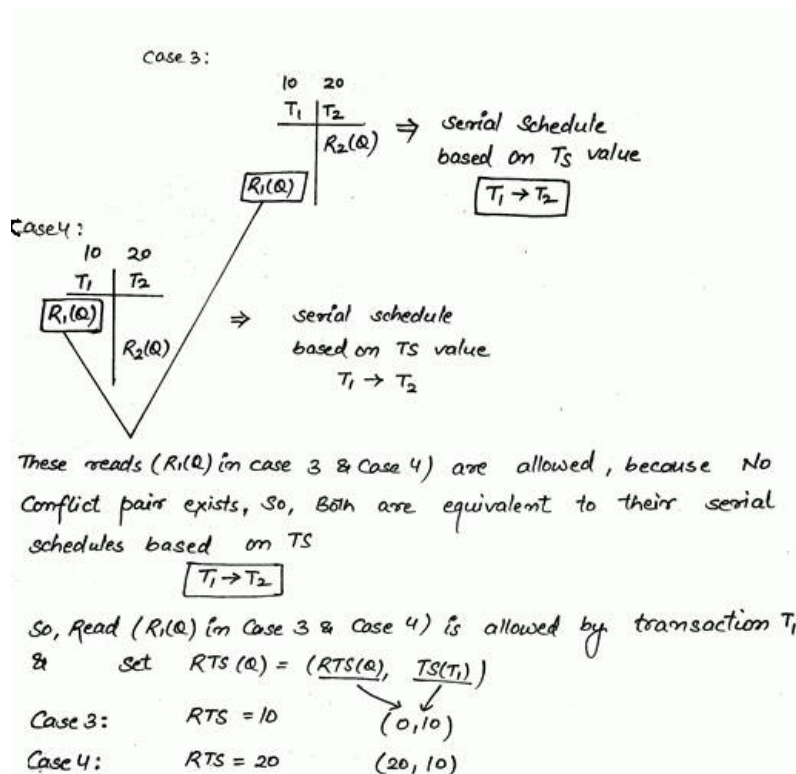 Case 3:
10 20
T1 T2
R2(Q) ⇒ serial schedule
based on TS value
R1(Q)
T1 → T2
Case 4:
10 20
T1 T2
R1(Q) ⇒ serial schedule
R2(Q) based on TS value
T1 → T2
These reads (R1(Q) in case 3 & Case 4) are allowed, because No
Conflict pair exists, So, Both are equivalent to their serial
schedules based on TS
T1 → T2
So, Read (R1(Q) in Case 3 & Case 4) is allowed by transaction T1
& set RTS(Q) = (RTS(Q), TS(T1))
Case 3: RTS = 10 (0,10)
Case 4: RTS = 20 (20, 10)